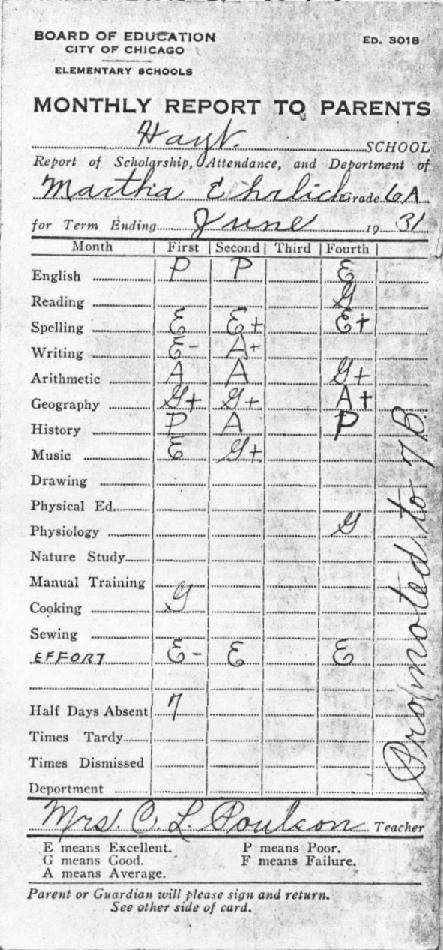 BOARD OF EDUCATION ED. 3018
CITY OF CHICAGO
ELEMENTARY SCHOOLS
MONTHLY REPORT TO PARENTS
Hayt SCHOOL
Report of Scholarship, Attendance, and Deportment of
Martha Ehrlich Grade 6A
for Term Ending June 1931
Month First Second Third Fourth
English P P E
Reading G
Spelling E E+ E+
Writing E- A+
Arithmetic A A G+
Geography G+ G+ A+
History P A P
Music E G+
Drawing
Physical Ed.
Physiology G
Nature Study
Manual Training
Cooking G
Sewing
EFFORT E- E E
Half Days Absent 7
Times Tardy
Times Dismissed
Deportment
Promoted to 7B.
Mrs. C. L. Poulson Teacher
E means Excellent. P means Poor.
G means Good. F means Failure.
A means Average.
Parent or Guardian will please sign and return.
See other side of card.